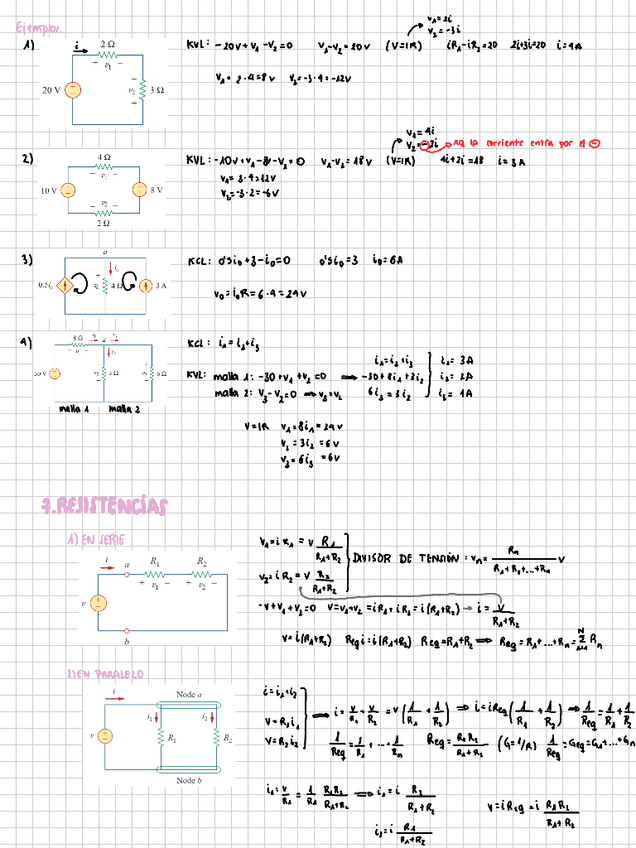 Ejemplos:
1)
i
2 Ω
+ v₁ −
20 V
v₂
3 Ω
KVL: -20v+v₁-v₂=0 v₁-v₂=20v (V=IR) iR₁-iR₂=20 2i+3i=20 i=4A
v₁=2i
v₂=-3i
v₁=2·4=8v v₂=-3·4=-12v
2)
4 Ω
+ v₁ −
10 V
8 V
v₂
2 Ω
KVL: -10v+v₁-8v-v₂=0 v₁-v₂=18v (V=IR) 4i+2i=18 i=3A
v₁=4i
v₂=-2i
la corriente entra por el ⊖
v₁=3·4=12v
v₂=-3·2=-6v
3)
a
4 Ω
3 A
KCL: 0'5i₀+3-i₀=0 0'5i₀=3 i₀=6A
v₀=i₀R=6·4=24v
4)
8 Ω
malla 1 malla 2
KCL: i₁=i₂+i₃
KVL: malla 1: -30+v₁+v₂=0 ⟹ -30+8i₁+3i₂
malla 2: v₃-v₂=0 ⟹ v₃=v₂
i₁=i₂+i₃
6i₃=3i₂
i₁=3A
i₂=2A
i₃=1A
V=IR v₁=8i₁=24v
v₂=3i₂=6v
v₃=6i₃=6v
7.RESISTENCIAS
1) EN SERIE
i
a
R₁
R₂
+ v₁ − + v₂ −
v
b
v₁=iR₁=v R₁/(R₁+R₂)
v₂=iR₂=v R₂/(R₁+R₂)
DIVISOR DE TENSIÓN: vₙ=Rₙ/(R₁+R₂+...+Rₙ) v
-v+v₁+v₂=0 v=v₁+v₂=iR₁+iR₂=i(R₁+R₂) → i=v/(R₁+R₂)
v=i(R₁+R₂) Reqi=i(R₁+R₂) Req=R₁+R₂ ⟹ Req=R₁+...+Rₙ=Σ Rₙ
2) EN PARALELO
i
Node a
i₁
i₂
v
R₁
R₂
Node b
i=i₁+i₂
v=R₁i₁
v=R₂i₂
⟹ i=v/R₁+v/R₂=v(1/R₁+1/R₂) ⟹ i=iReq(1/R₁+1/R₂) ⟹ 1/Req=1/R₁+1/R₂
1/Req=1/R₁+...+1/Rₙ Req=R₁R₂/(R₁+R₂) (G=1/R) 1/Req=Geq=G₁+...+Gₙ
i₁=v/R₁=1/R₁ R₁R₂/(R₁+R₂) ⟹ i₁=i R₂/(R₁+R₂)
v=iReq=i R₁R₂/(R₁+R₂)
i₂=i R₁/(R₁+R₂)